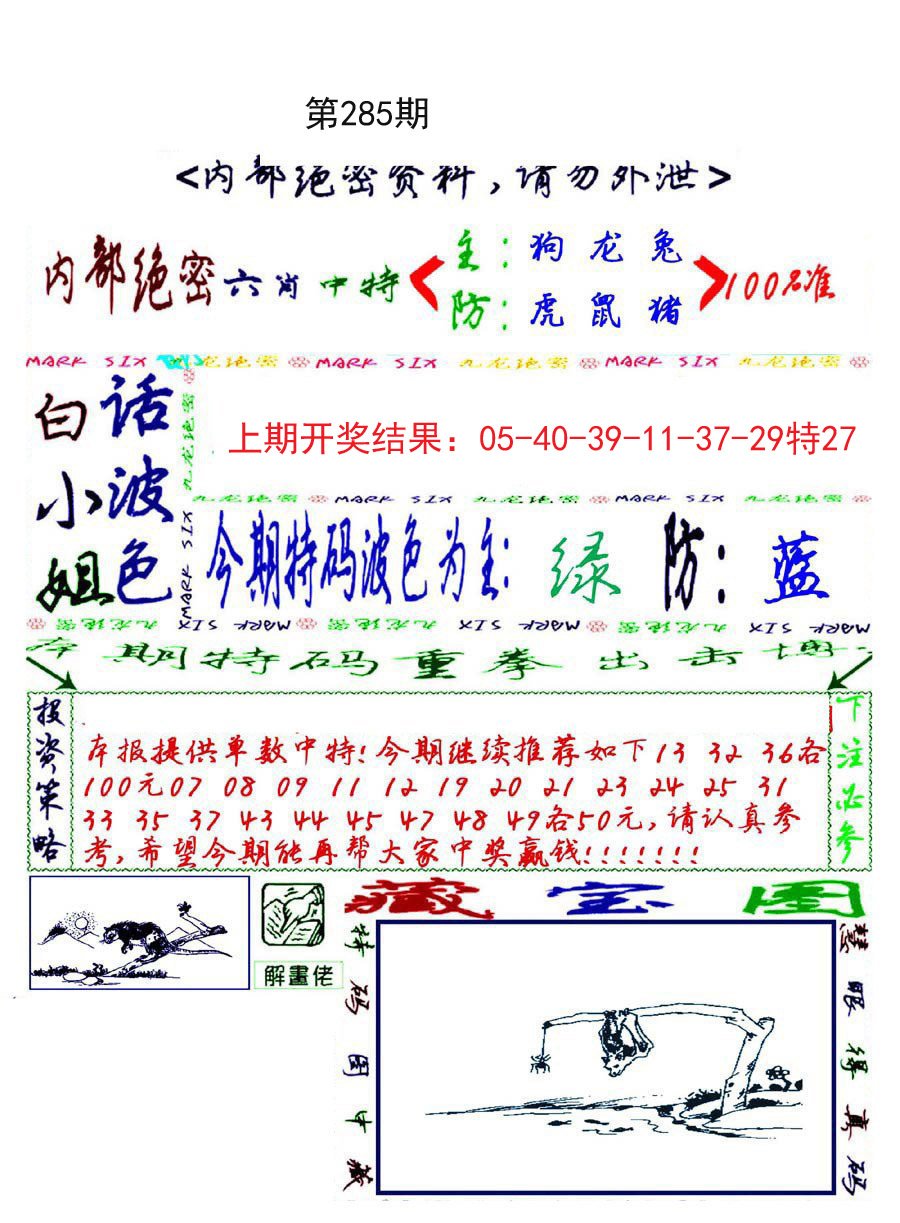 第285期
<内部绝密资料,请勿外泄>
内部绝密六肖中特
主:狗龙兔
防:虎鼠猪
100%准
MARK SIX 九龙绝密 MARK SIX 九龙绝密 MARK SIX 九龙绝密
白小姐
话波色
九龙绝密
MARK SIX
上期开奖结果：05-40-39-11-37-29特27
九龙绝密 MARK SIX 九龙绝密 MARK SIX 九龙绝密
今期特码波色为主:绿 防:蓝
九龙绝密 MARK SIX 九龙绝密 MARK SIX 九龙绝密 MARK SIX
本期特码重拳出击
投资策略
本报提供单数中特!今期继续推荐如下13 32 36各
100元07 08 09 11 12 19 20 21 23 24 25 31
33 35 37 43 44 45 47 48 49各50元,请认真参
考,希望今期能再帮大家中奖赢钱!!!!!!!
下注必参
解畫佬
藏宝图
特码图中藏
慧眼得真码